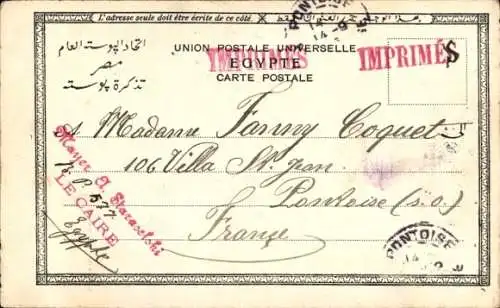 L'adresse seule doit être écrite de ce côté.
PONTOISE
14 -9
اتحاد البوستة العام
مصر
تذكرة بوسته
UNION POSTALE UNIVERSELLE
EGYPTE
CARTE POSTALE
IMPRIMÉS
IMPRIMÉS
A Madame Fanny Coquet
106 Villa St. Jean
Pontoise (s.o.)
France
Mayer A.
B.P. 577
LE CAIRE
Egypte
PONTOISE
14